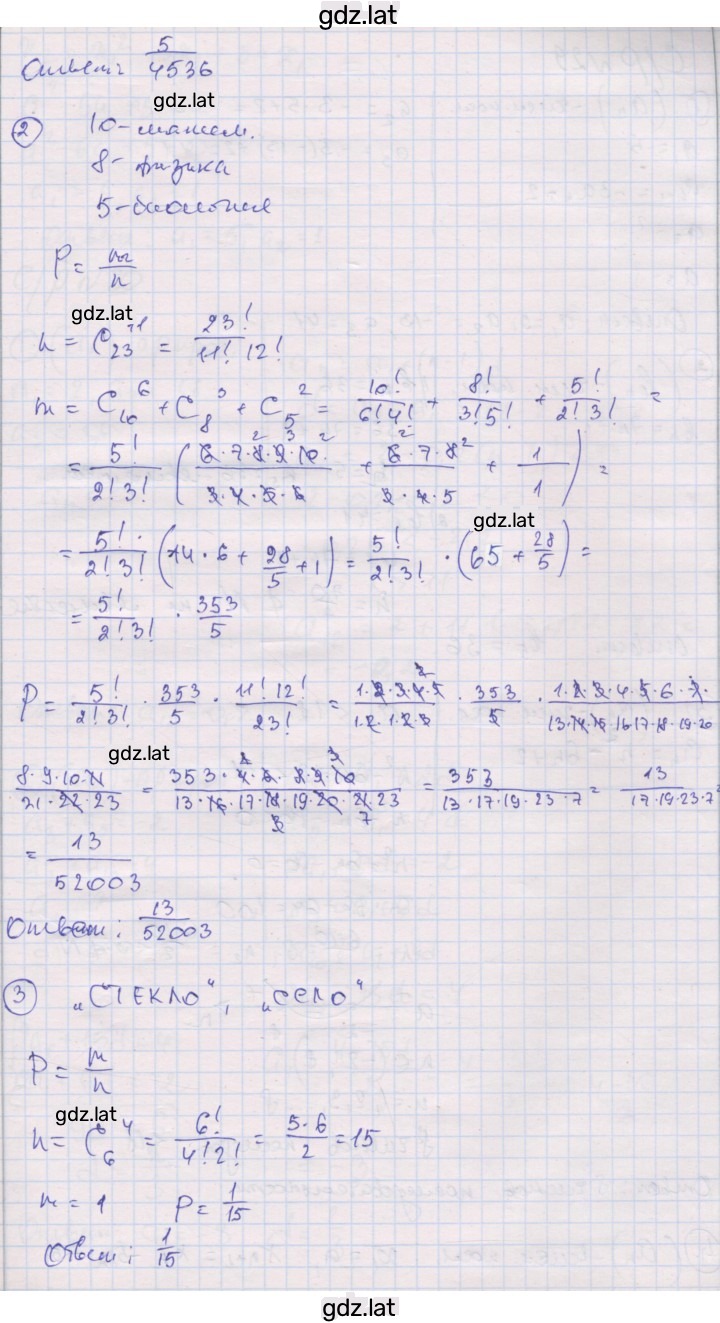 gdz.lat
Ответ: 5/4536
gdz.lat
2 10-матем.
8- физика
5-биология
P = m/n
gdz.lat
n = C₂₃¹¹ = 23!/11! 12!
m = C₁₀⁶ + C₈³ + C₅² = 10!/6!4! + 8!/3!5! + 5!/2!3! =
= 5!/2!3! (6·7·8·9·10/3·4·5·6 + 6·7·8/3·4·5 + 1/1) =
gdz.lat
= 5!·/2!3! (14·6 + 28/5 + 1) = 5!/2!3! · (65 + 28/5) =
= 5!/2!3! · 353/5
P = 5!/2!3! · 353/5 · 11!12!/23! = 1·2·3·4·5/1·2·1·2·3 · 353/5 · 1·2·3·4·5·6·7·/13·14·15·16·17·18·19·20
gdz.lat
8·9·10·11/21·22·23 = 353·4·6·8·9·10/13·16·17·18·19·20·21·23 = 353/13·17·19·23·7 = 13/17·19·23·7
= 13/52003
Ответ: 13/52003
3 „СТЕКЛО", „СЕЛО"
P = m/n
gdz.lat
n = C₆⁴ = 6!/4!2! = 5·6/2 = 15
m = 1 P = 1/15
Ответ: 1/15
gdz.lat